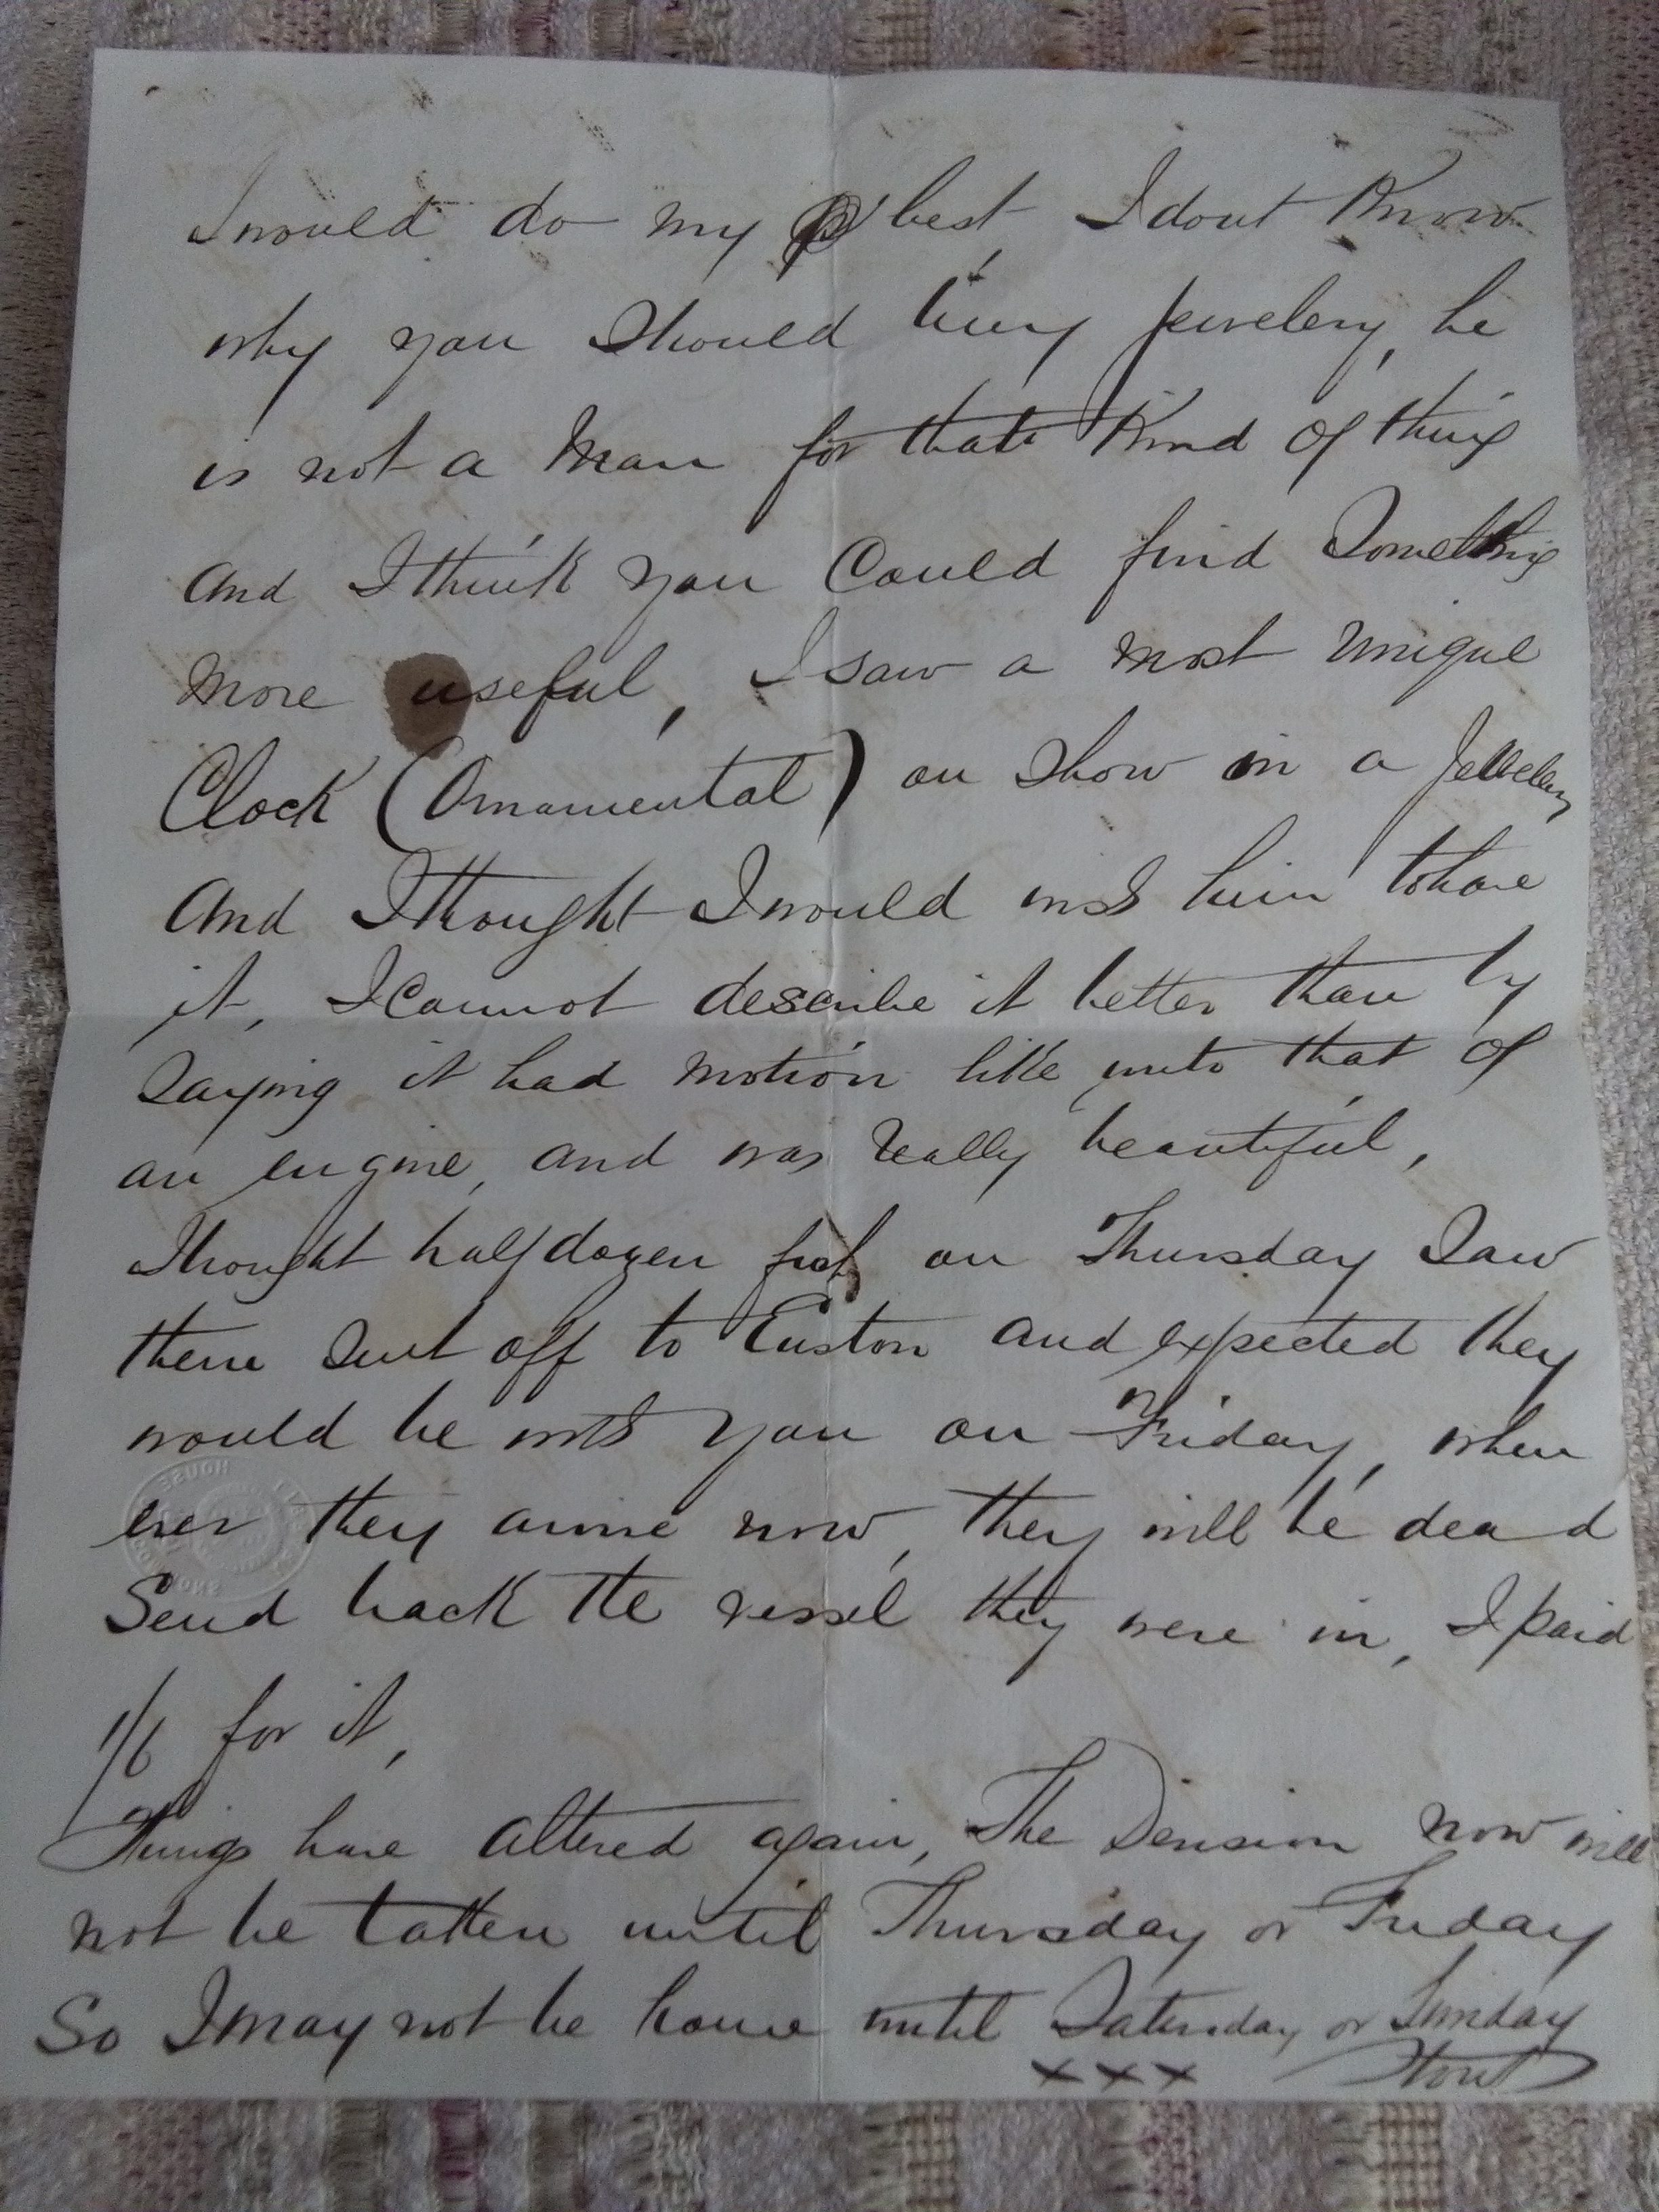 I would do my best, I dont Know
why you should buy jewelery, he
is not a man for that Kind of thing
and I think you Could find Something
more useful, I saw a most unique
Clock (Ornamental) on show in a Jewelery
and I thought I would wish him to have
it, I Cannot describe it better than by
Saying it had motion like unto that of
an engine, and was really beautiful,
I bought half dozen fish on Thursday Saw
them Sent off to Euston and expected they
would be with you on Friday, when
ever they arrive now, they will be dead
Send back the vessel they were in, I paid
1/6 for it,
Things have altered again, The Division now will
not be taken until Thursday or Friday
So I may not be home until Saturday or Sunday
xxx
HOUSE